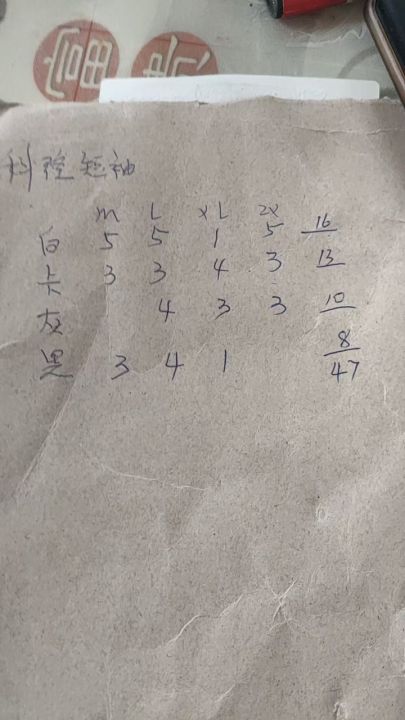 科控短袖
M L XL 2X
白 5 5 1 5 16
卡 3 3 4 3 13
灰 4 3 3 10
黑 3 4 1 8
47